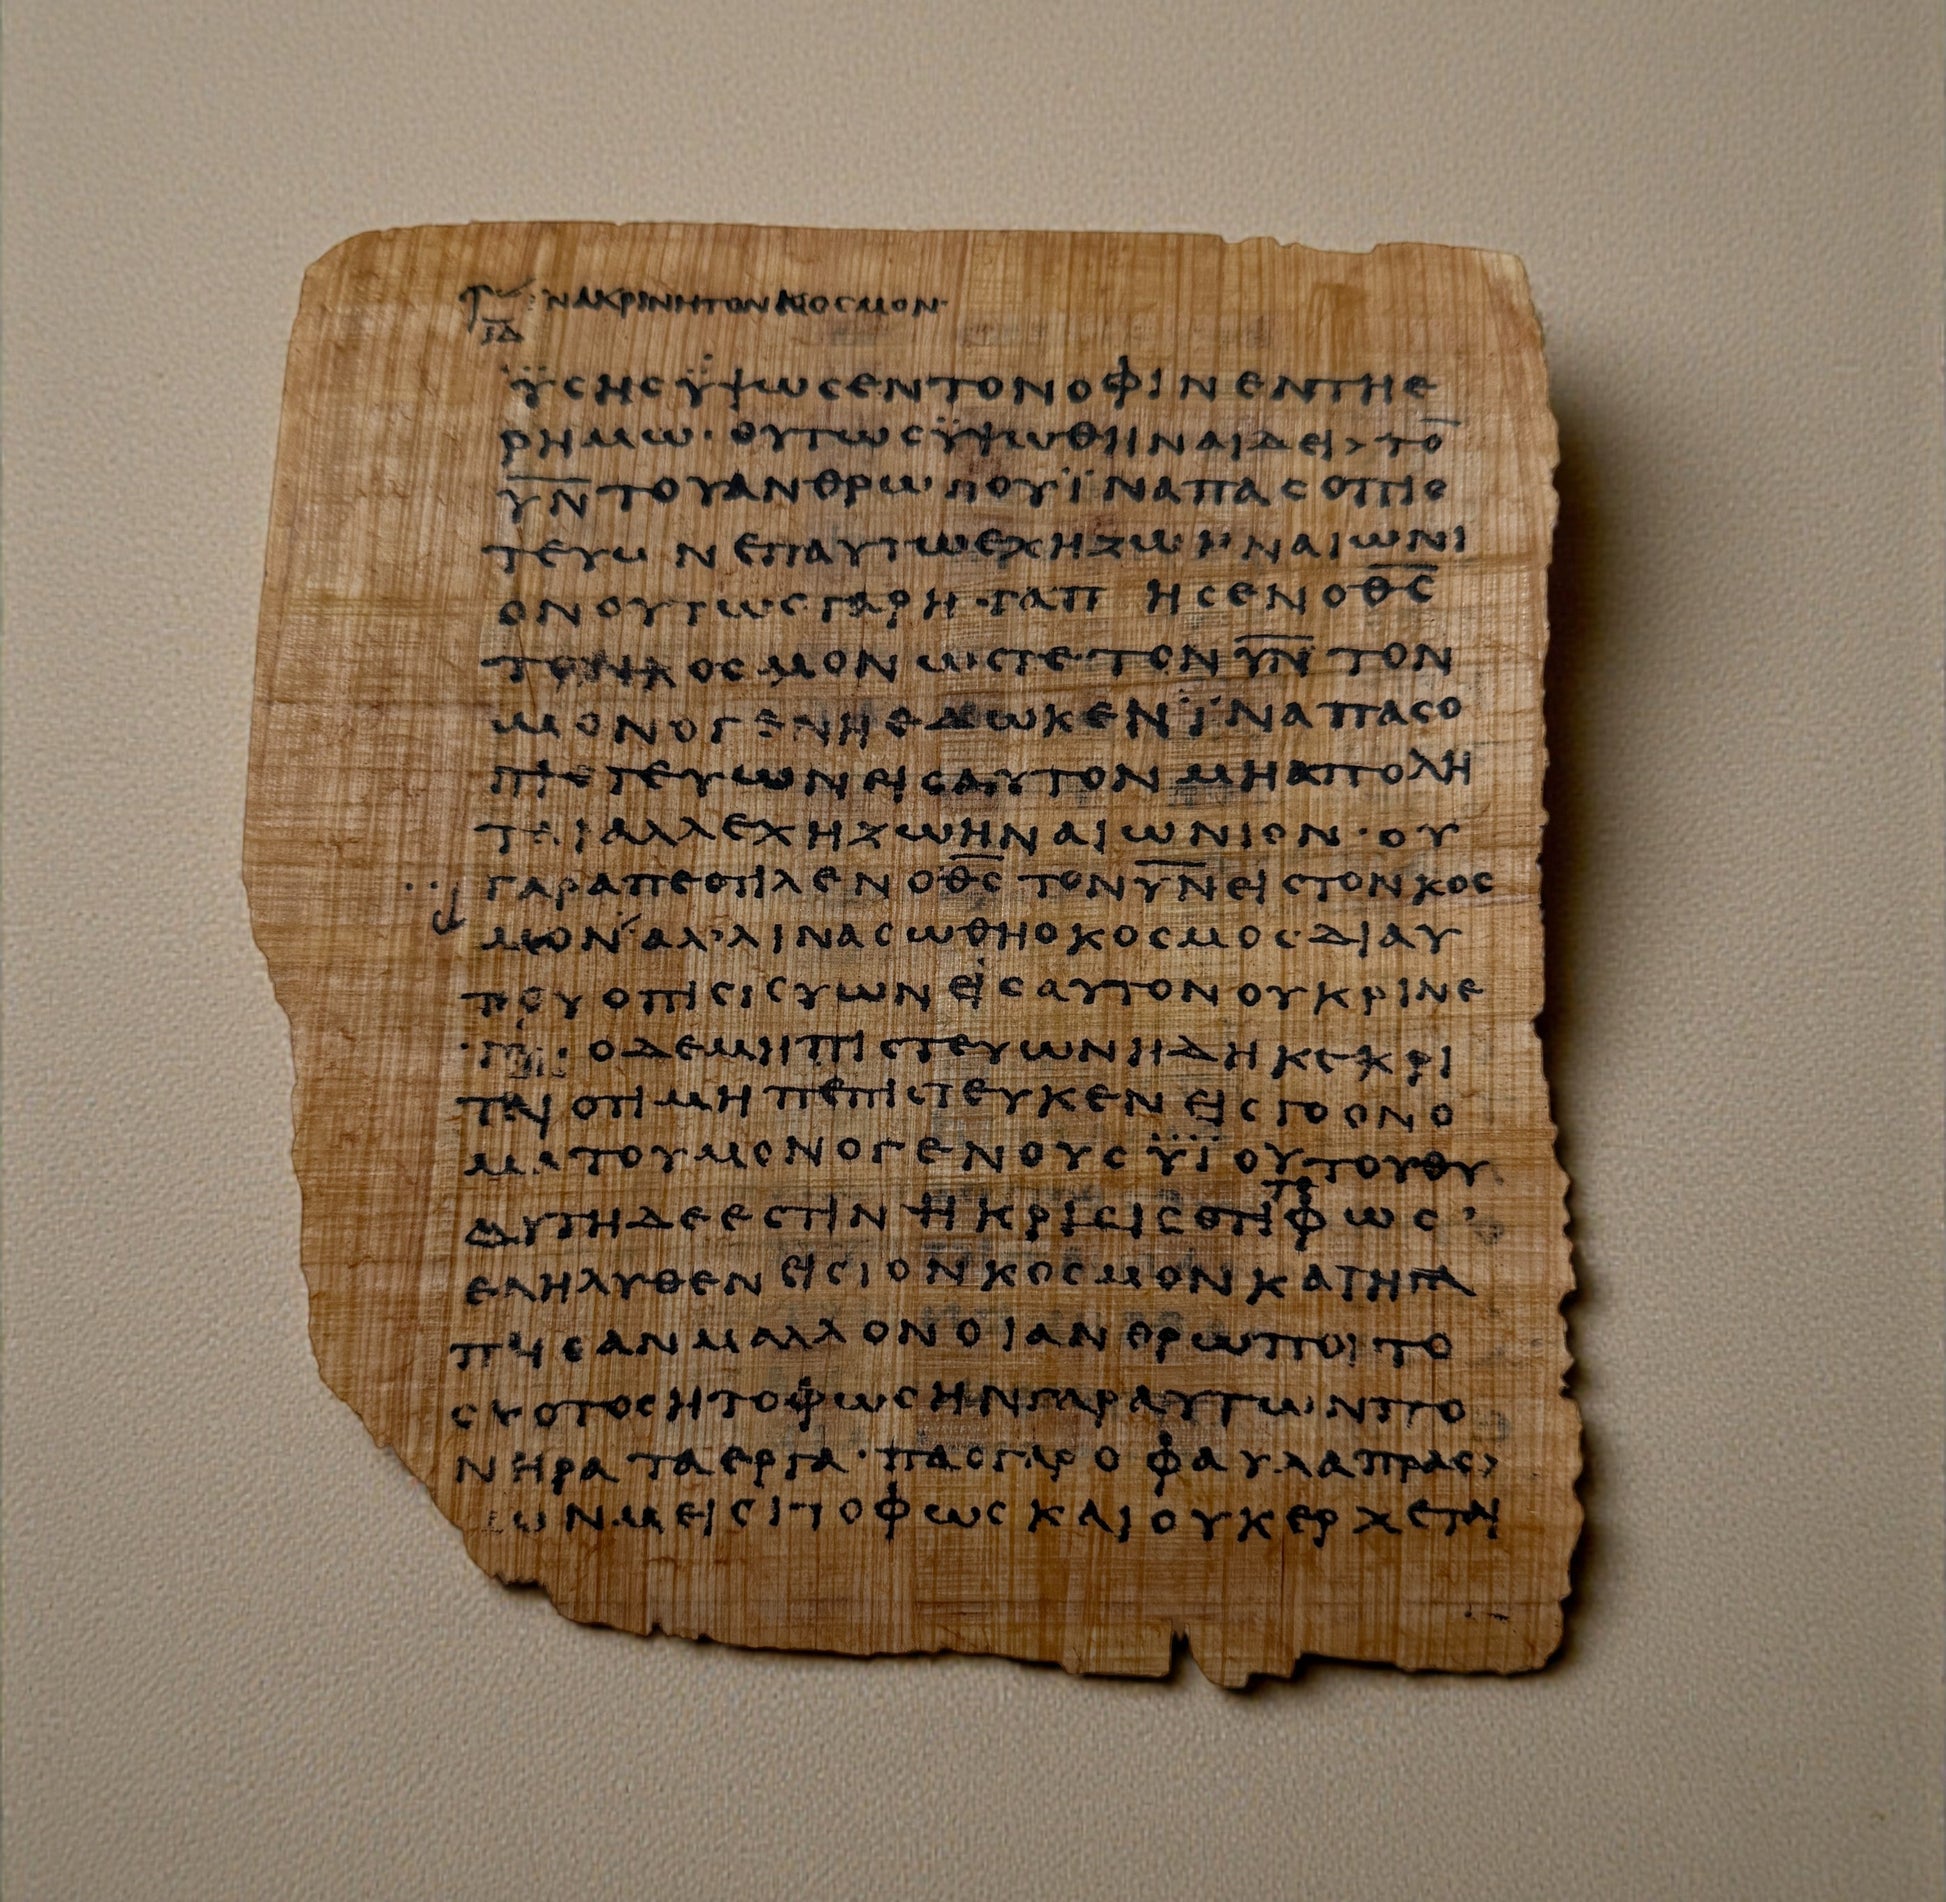 ΝΑΚΡΙΝΗΤΟΝΚΟΣΜΟΝ·
ΙΔ
ΫΣΗΣΫΨΩΣΕΝΤΟΝΟΦΙΝΕΝΤΗΕ
ΡΗΜΩ·ΟΥΤΩΣΫΨΩΘΗΝΑΙΔΕΙ>ΤΟ̅
Υ̅Ν̅ΤΟΥΑΝΘΡΩΠΟΥΪΝΑΠΑΣΟΠΙΣ
ΤΕΥΩΝΕΠΑΥΤΩΕΧΗΖΩΗΝΑΙΩΝΙ
ΟΝΟΥΤΩΣΓΑΡΗΓΑΠΗΣΕΝΟΘ̅Σ̅
ΤΟΝΚΟΣΜΟΝΩΣΤΕΤΟΝΥ̅Ν̅ΤΟΝ
ΜΟΝΟΓΕΝΗΕΔΩΚΕΝΪΝΑΠΑΣΟ
ΠΙΣΤΕΥΩΝΕΙΣΑΥΤΟΝΜΗΑΠΟΛΗ
ΤΑΙΑΛΛΕΧΗΖΩΗΝΑΙΩΝΙΟΝ·ΟΥ
ΓΑΡΑΠΕΣΤΙΛΕΝΟΘ̅Σ̅ΤΟΝΥ̅Ν̅ΕΙΣΤΟΝΚΟΣ
ΜΟΝΑΛΛΙΝΑΣΩΘΗΟΚΟΣΜΟΣΔΙΑΥ
ΤΟΥΟΠΙΣΙΣΥΩΝΕΙΣΑΥΤΟΝΟΥΚΡΙΝΕ
ΟΔΕΜΗΠΙΣΤΕΥΩΝΗΔΗΚΕΚΡΙ
ΤΑΙΟΤΙΜΗΠΕΠΙΣΤΕΥΚΕΝΕΙΣΤΟΟΝΟ
ΜΑΤΟΥΜΟΝΟΓΕΝΟΥΣΫΪΟΥΤΟΥΘΥ
ΑΥΤΗΔΕΕΣΤΙΝΗΚΡΙΣΙΣΟΤΙΤΟΦΩΣ
ΕΛΗΛΥΘΕΝΕΙΣΤΟΝΚΟΣΜΟΝΚΑΙΗΓΑ
ΠΗΣΑΝΜΑΛΛΟΝΟΙΑΝΘΡΩΠΟΙΤΟ
ΣΚΟΤΟΣΗΤΟΦΩΣΗΝΓΑΡΑΥΤΩΝΠΟ
ΝΗΡΑΤΑΕΡΓΑ·ΠΑΣΓΑΡΟΦΑΥΛΑΠΡΑΣ>
ΩΝΜΕΙΣΙΤΟΦΩΣΚΑΙΟΥΚΕΡΧΕΤΑΙ